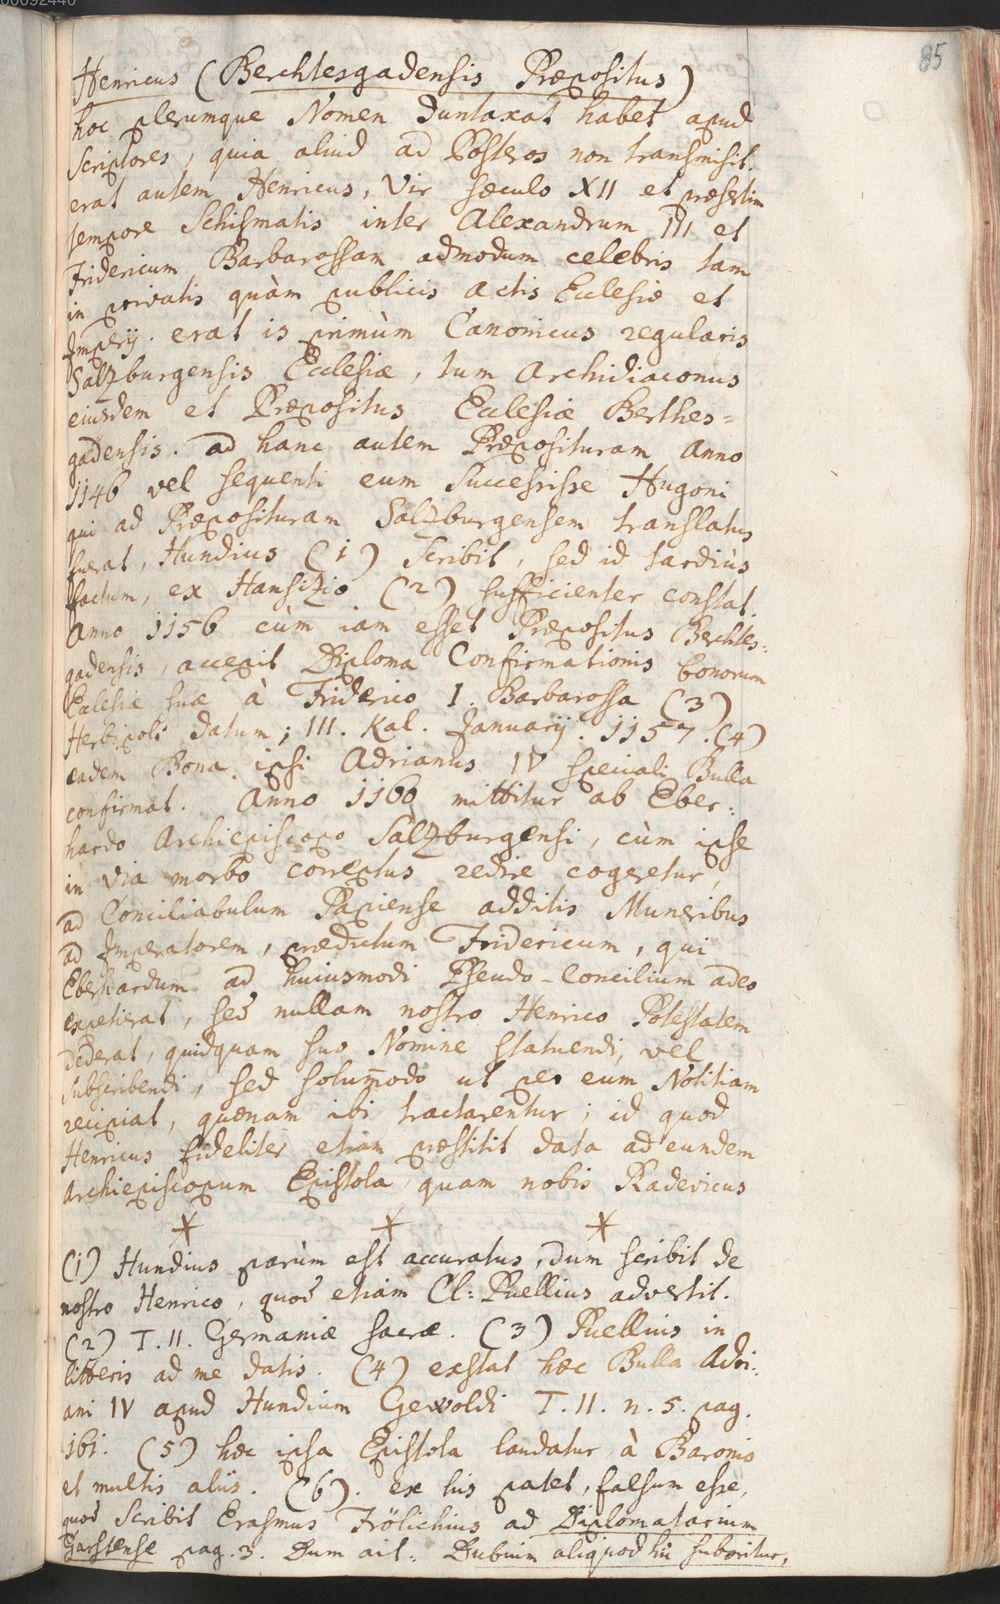 00092440
85
Henricus (Berchtesgadensis Præpositus)
hoc plerumque Nomen duntaxat habet apud
Scriptores, quia aliud ad Posteros non transmisit.
erat autem Henricus, Vir sæculo XII et præsertim
tempore Schismatis inter Alexandrum III et
Fridericum Barbarossam admodum celebris tam
in privatis quàm publicis actis Eclesiæ et
Imperij. erat is primùm Canonicus regularis
Salzburgensis Ecclesiæ, tum Archidiaconus
eiusdem et Præpositus Eclesiæ Berthes=
gadensis. ad hanc autem Præposituram Anno
1146 vel sequenti eum Successisse Hugoni
qui ad Præposituram Salzburgensem translatus
fuerat, Hundius (1) scribit, sed id tardiùs
factum, ex Hansizio (2) sufficienter constat.
Anno 1156 cùm iam esset Præpositus Berchtes=
gadensis, accepit Diploma Confirmationis bonorum
Eclesiæ suæ à Friderico I. Barbarossa (3)
Herbipoli datum; III. Kal. Januarij. 1157. (4)
eadem Bona ipsi Adrianus IV speciali Bulla
confirmat. Anno 1160 mittitur ab Eber:
hardo Archiepiscopo Salzburgensi, cùm ipse
in via morbo correptus redire cogeretur,
ad Conciliabulum Papiense additis Muneribus
ad Imperatorem, prædictum Fridericum, qui
Eberhardum ad huiusmodi Pseudo-Concilium adeo
expetierat, sed nullam nostro Henrico Potestatem
dederat, quidquam suo Nomine statuendi, vel
subscribendi, sed solum̄odo ut per eum Notitiam
recipiat, quænam ibi tractarentur; id quod
Henricus fideliter etiam præstitit data ad eundem
Archiepiscopum Epistola, quam nobis Radevicus
(1) Hundius parùm est accuratus, dum scribit de
nostro Henrico, quod etiam Cl: Puellius advertit.
(2) T. II. Germaniæ sacræ. (3) Puellius in
litteris ad me datis. (4) exstat hæc Bulla Adri:
ani IV apud Hundium Gewoldi T. II. n. 5. pag.
161. (5) hæc ipsa Epistola laudatur à Baronio
et multis aliis. (6). ex his patet, falsum esse,
quod scribit Erasmus Frölichius ad Diplomatarium
Garstense pag. 3. Dum ait: Dubium aliquod hii suboritur,